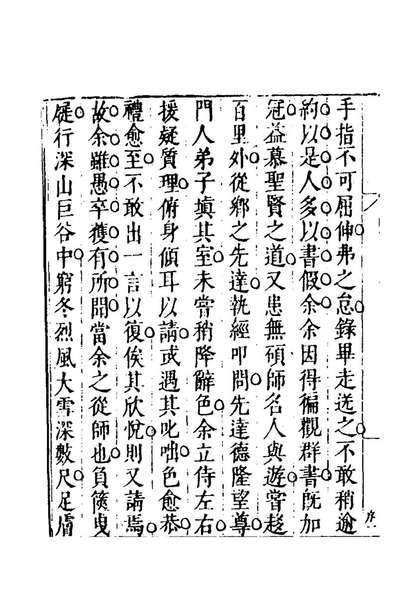 手指不可屈伸弗之怠錄畢走送之不敢稍逾
約以是人多以書假余余因得徧觀群書旣加
冠益慕聖賢之道又患無碩師名人與遊嘗趍
百里外從鄉之先達執經叩問先達德隆望尊
門人弟子塡其室未嘗稍降辭色余立侍左右
援疑質理俯身傾耳以請或遇其叱咄色愈恭
禮愈至不敢出一言以復俟其欣悅則又請焉
故余雖愚卒獲有所聞當余之從師也負篋曳
屣行深山巨谷中窮冬烈風大雪深數尺足膚
序